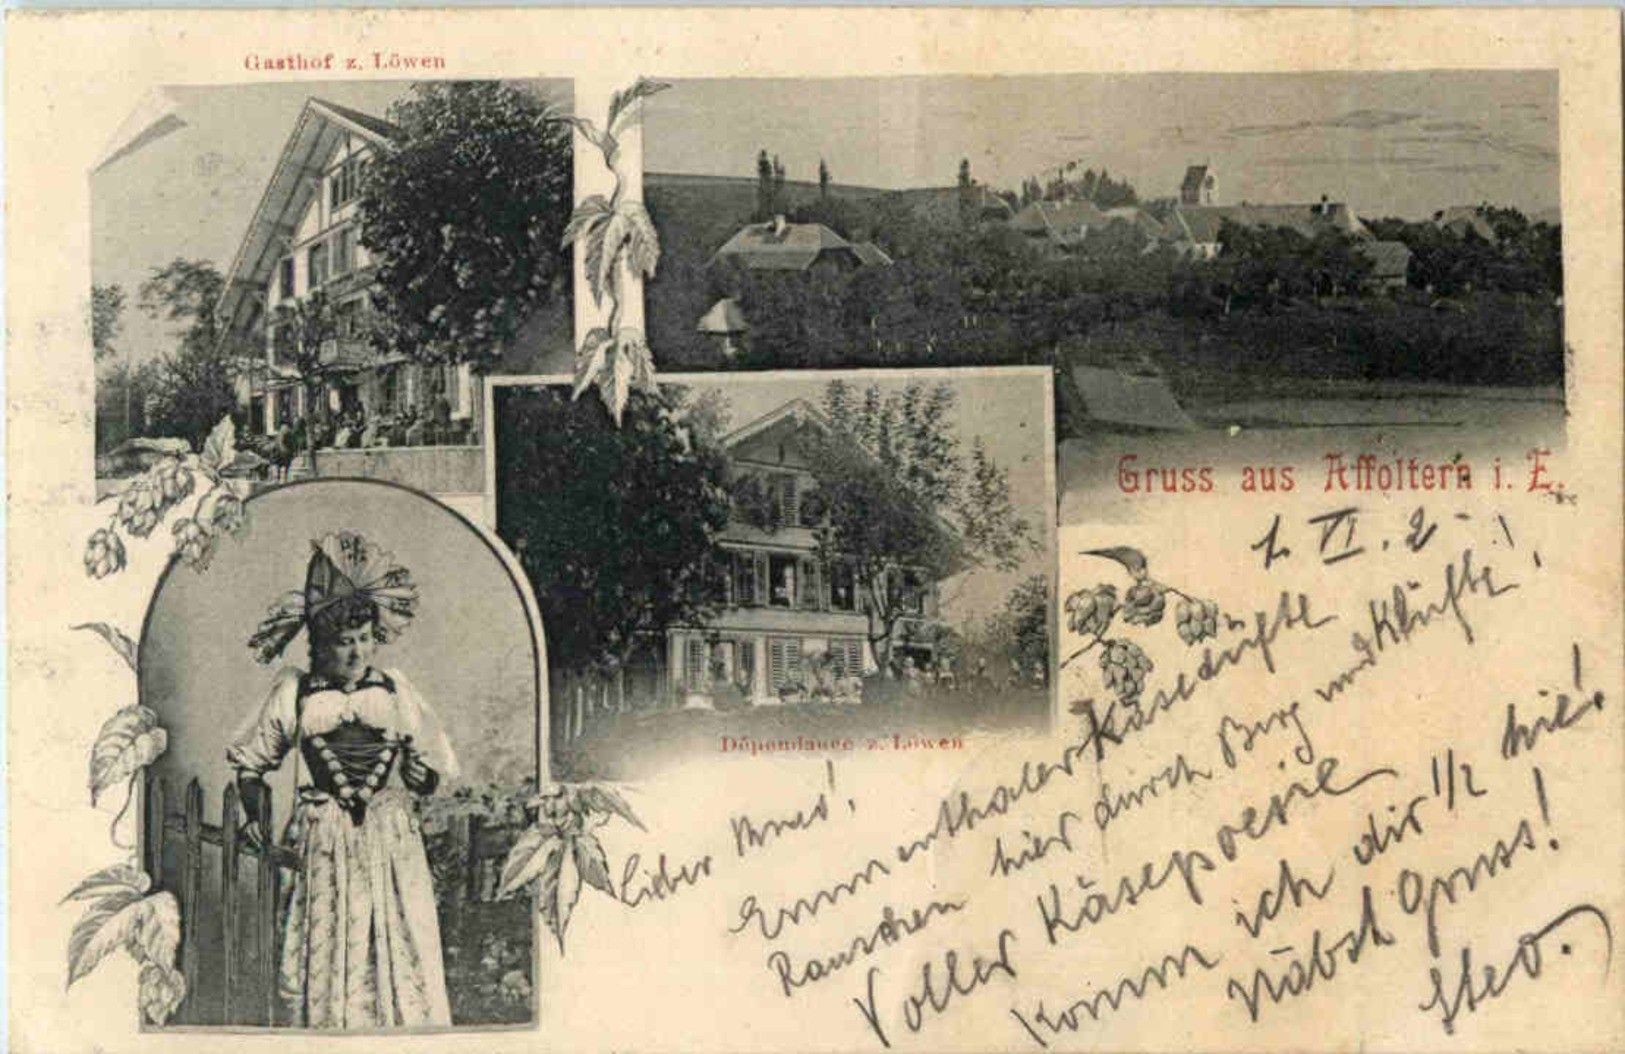 Gasthof z. Löwen
Gruss aus Affoltern i. E.
1. VI. 2.
Dépendance z. Löwen
Lieber
Emmenthaler Käsedüfte
Rauschen hier durch Berg und Klüfte!
Voller Käsepoesie
Komm ich dir 1/2 hie!
Näbst Gruss!
Stev.